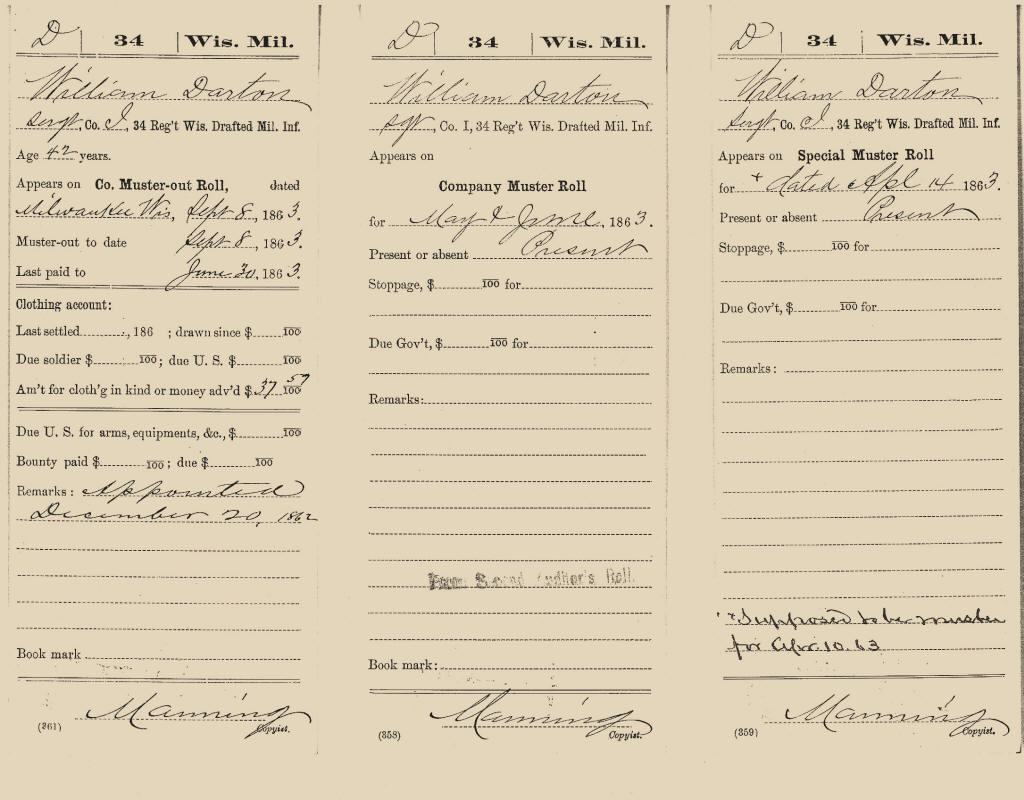 D | 34 | Wis. Mil.
William Darton
Sergt, Co. I, 34 Reg't Wis. Drafted Mil. Inf.
Age 42 years.
Appears on Co. Muster-out Roll, dated
Milwaukee Wis, Sept 8, 1863.
Muster-out to date Sept 8, 1863.
Last paid to June 30, 1863.
Clothing account:
Last settled, 186 ; drawn since $ 100
Due soldier $ 100; due U. S. $ 100
Am't for cloth'g in kind or money adv'd $ 37 57/100
Due U. S. for arms, equipments, &c., $ 100
Bounty paid $ 100; due $ 100
Remarks: Appointed
December 20, 1862
Book mark
Manning
(361) Copyist.
D | 34 | Wis. Mil.
William Darton
Sgt, Co. I, 34 Reg't Wis. Drafted Mil. Inf.
Appears on
Company Muster Roll
for May & June, 1863.
Present or absent Present
Stoppage, $ 100 for
Due Gov't, $ 100 for
Remarks:
From Second Auditor's Roll.
Book mark:
Manning
(358) Copyist.
D | 34 | Wis. Mil.
William Darton
Sergt, Co. I, 34 Reg't Wis. Drafted Mil. Inf.
Appears on Special Muster Roll
for + dated Apl 14 1863.
Present or absent Present
Stoppage, $ 100 for
Due Gov't, $ 100 for
Remarks:
+ Supposed to be muster
for Apr. 10. 63
Manning
(359) Copyist.